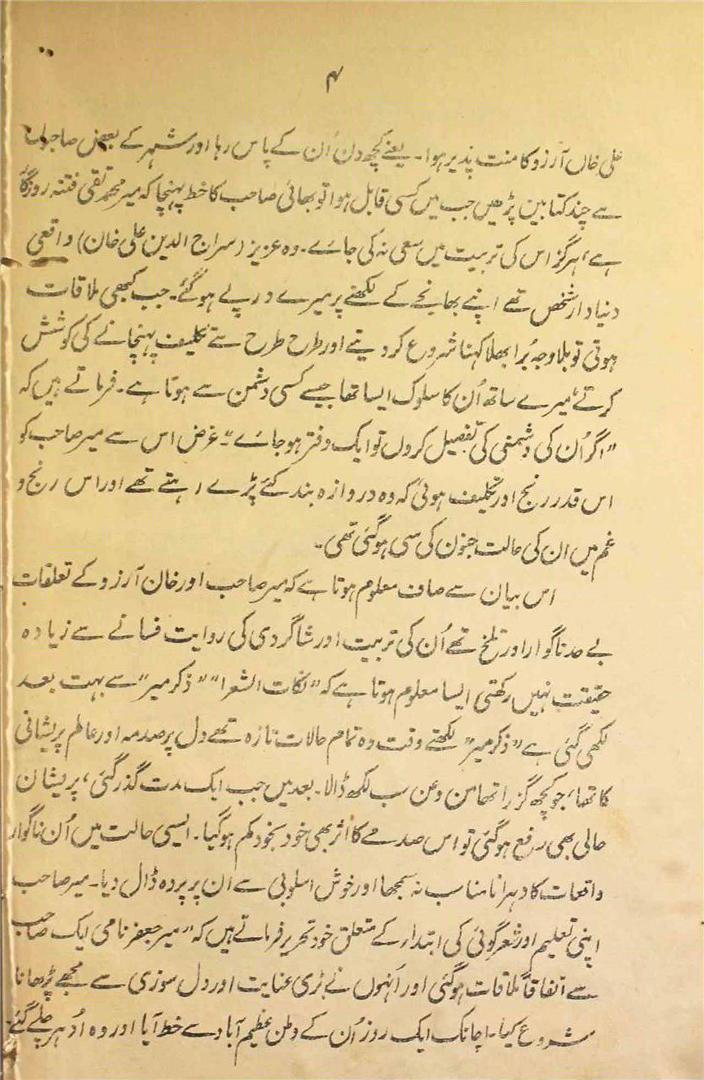 ۴
علی خاں آرزو کا منت پذیر ہوا۔ یعنے کچھ دن اُن کے پاس رہا اور شہر کے بعض صاحبوں
سے چند کتابیں پڑھیں جب میں کسی قابل ہوا تو بھائی صاحب کا خط پہنچا کہ میر محمد تقی فتنہ روزگا
ہے، ہرگز اس کی تربیت میں سعی نہ کی جائے۔ وہ عزیز (سراج الدین علی خان) واقعی
دنیادار شخص تھے اپنے بھانجے کے لکھنے پر میرے درپے ہوگئے۔ جب کبھی ملاقات
ہوتی تو بلاوجہ بُرا بھلا کہنا شروع کر دیتے اور طرح طرح سے تکلیف پہنچانے کی کوشش
کرتے میرے ساتھ اُن کا سلوک ایسا تھا جیسے کسی دشمن سے ہوتا ہے۔ فرماتے ہیں کہ
”اگر اُن کی دشمنی کی تفصیل کروں تو ایک دفتر ہو جائے“۔ غرض اس سے میر صاحب کو
اس قدر رنج اور تکلیف ہوئی کہ وہ دروازہ بند کئے پڑے رہتے تھے اور اس رنج و
غم میں ان کی حالت جنون کی سی ہوگئی تھی۔
اس بیان سے صاف معلوم ہوتا ہے کہ میر صاحب اور خان آرزو کے تعلقات
بے حد ناگوار اور تلخ تھے اُن کی تربیت اور شاگردی کی روایت فسانے سے زیادہ
حقیقت نہیں رکھتی ایسا معلوم ہوتا ہے کہ ”نکات الشعرا“ ”ذکر میر“ سے بہت بعد
لکھی گئی ہے ”ذکر میر“ لکھتے وقت وہ تمام حالات تازہ تھے دل پر صدمہ اور عالم پریشانی
کا تھا، جو کچھ گزرا تھا من و عن سب لکھ ڈالا۔ بعد میں جب ایک مدت گذر گئی، پریشان
حالی بھی رفع ہوگئی تو اس صدمے کا اثر بھی خود بخود کم ہوگیا۔ ایسی حالت میں اُن ناگوار
واقعات کا دہرانا مناسب نہ سمجھا اور خوش اسلوبی سے ان پر پردہ ڈال دیا۔ میر صاحب
اپنی تعلیم اور شعر گوئی کی ابتداء کے متعلق خود تحریر فرماتے ہیں کہ ”میر جعفر نامی ایک صاحب
سے اتفاقاً ملاقات ہوگئی اور اُنہوں نے بڑی عنایت اور دل سوزی سے مجھے پڑھانا
شروع کیا۔ اچانک ایک روز اُن کے وطن عظیم آباد سے خط آیا اور وہ اُدہر چلے گئے۔